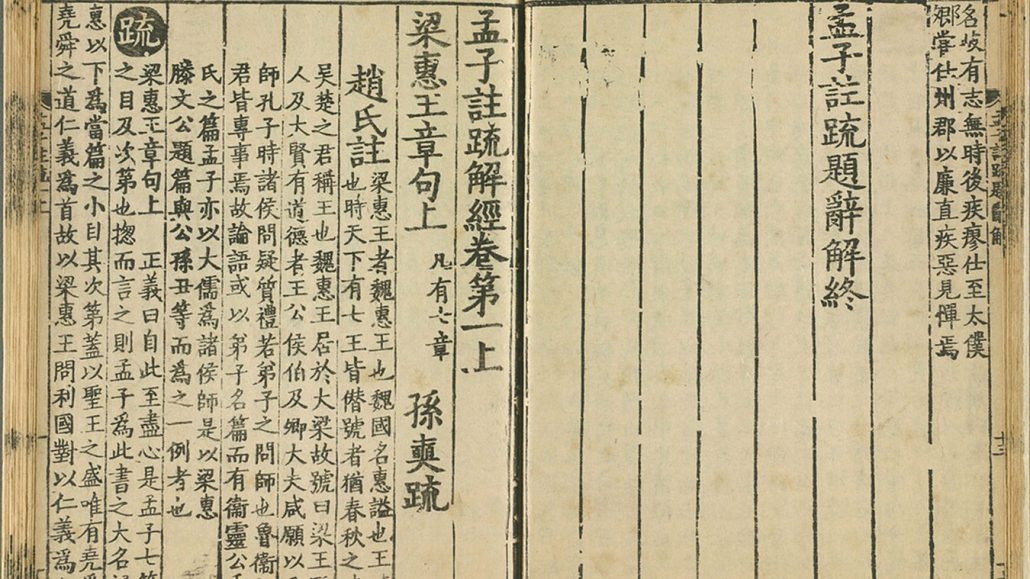 名岐有志無時後疾瘳仕至太僕
卿嘗仕州郡以廉直疾惡見憚焉
孟子註疏題辭解終
孟子註疏解經卷第一上
梁惠王章句上 凡有七章 孫奭疏
趙氏註 梁惠王者魏惠王也魏國名惠謚也王
也時天下有七王皆僭號者猶春秋之
吳楚之君稱王也魏惠王居於大梁故號曰梁王
人及大賢有道德者王公侯伯及卿大夫咸願以
師孔子時諸侯問疑質禮若弟子之問師也魯衛
君皆專事焉故論語或以弟子名篇而有衛靈公
氏之篇孟子亦以大儒爲諸侯師是以梁惠
滕文公題篇與公孫丑等而爲之一例者也
疏 梁惠王章句上 正義曰自此至盡心是孟子七
之目及次第也惣而言之則孟子爲此書之大名
惠以下爲當篇之小目其次第蓋以聖王之盛唯有堯
堯舜之道仁義爲首故以梁惠王問利國對以仁義爲